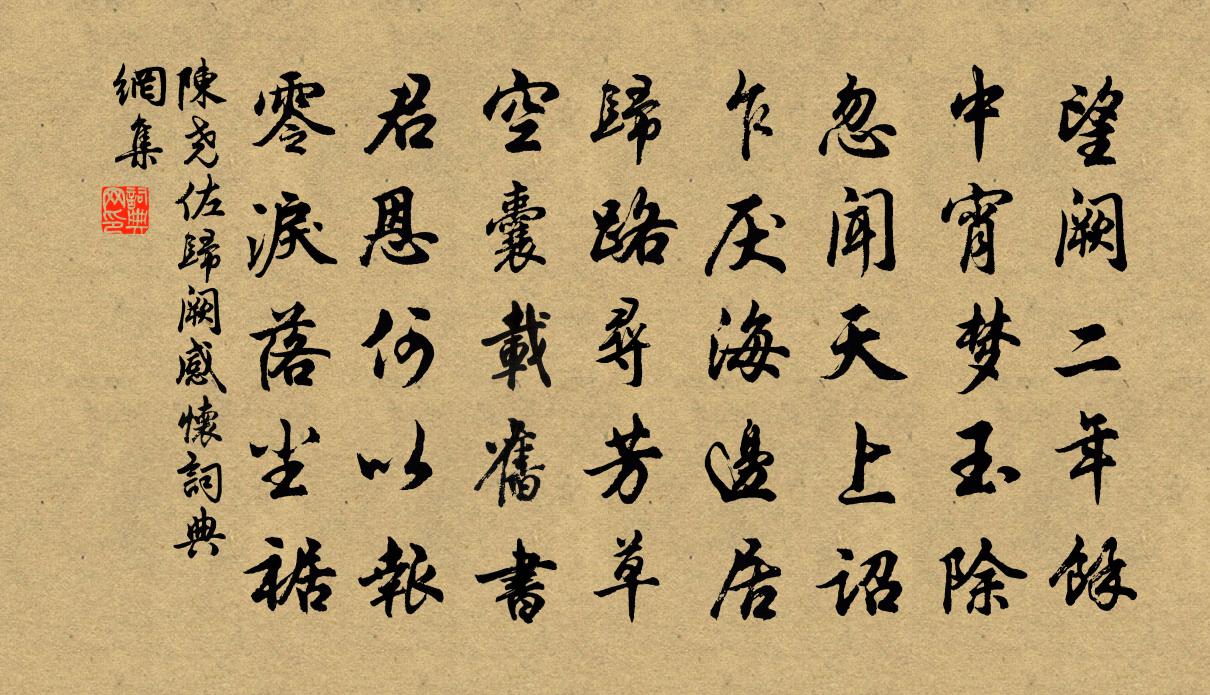 望阙二年餘
中宵梦玉除
忽闻天上詔
乍厌海邊居
歸路尋芳草
空囊載舊書
君恩何以報
零淚落尘裾
陳尧佐歸阙感懷詞典
網集
詞典
网印